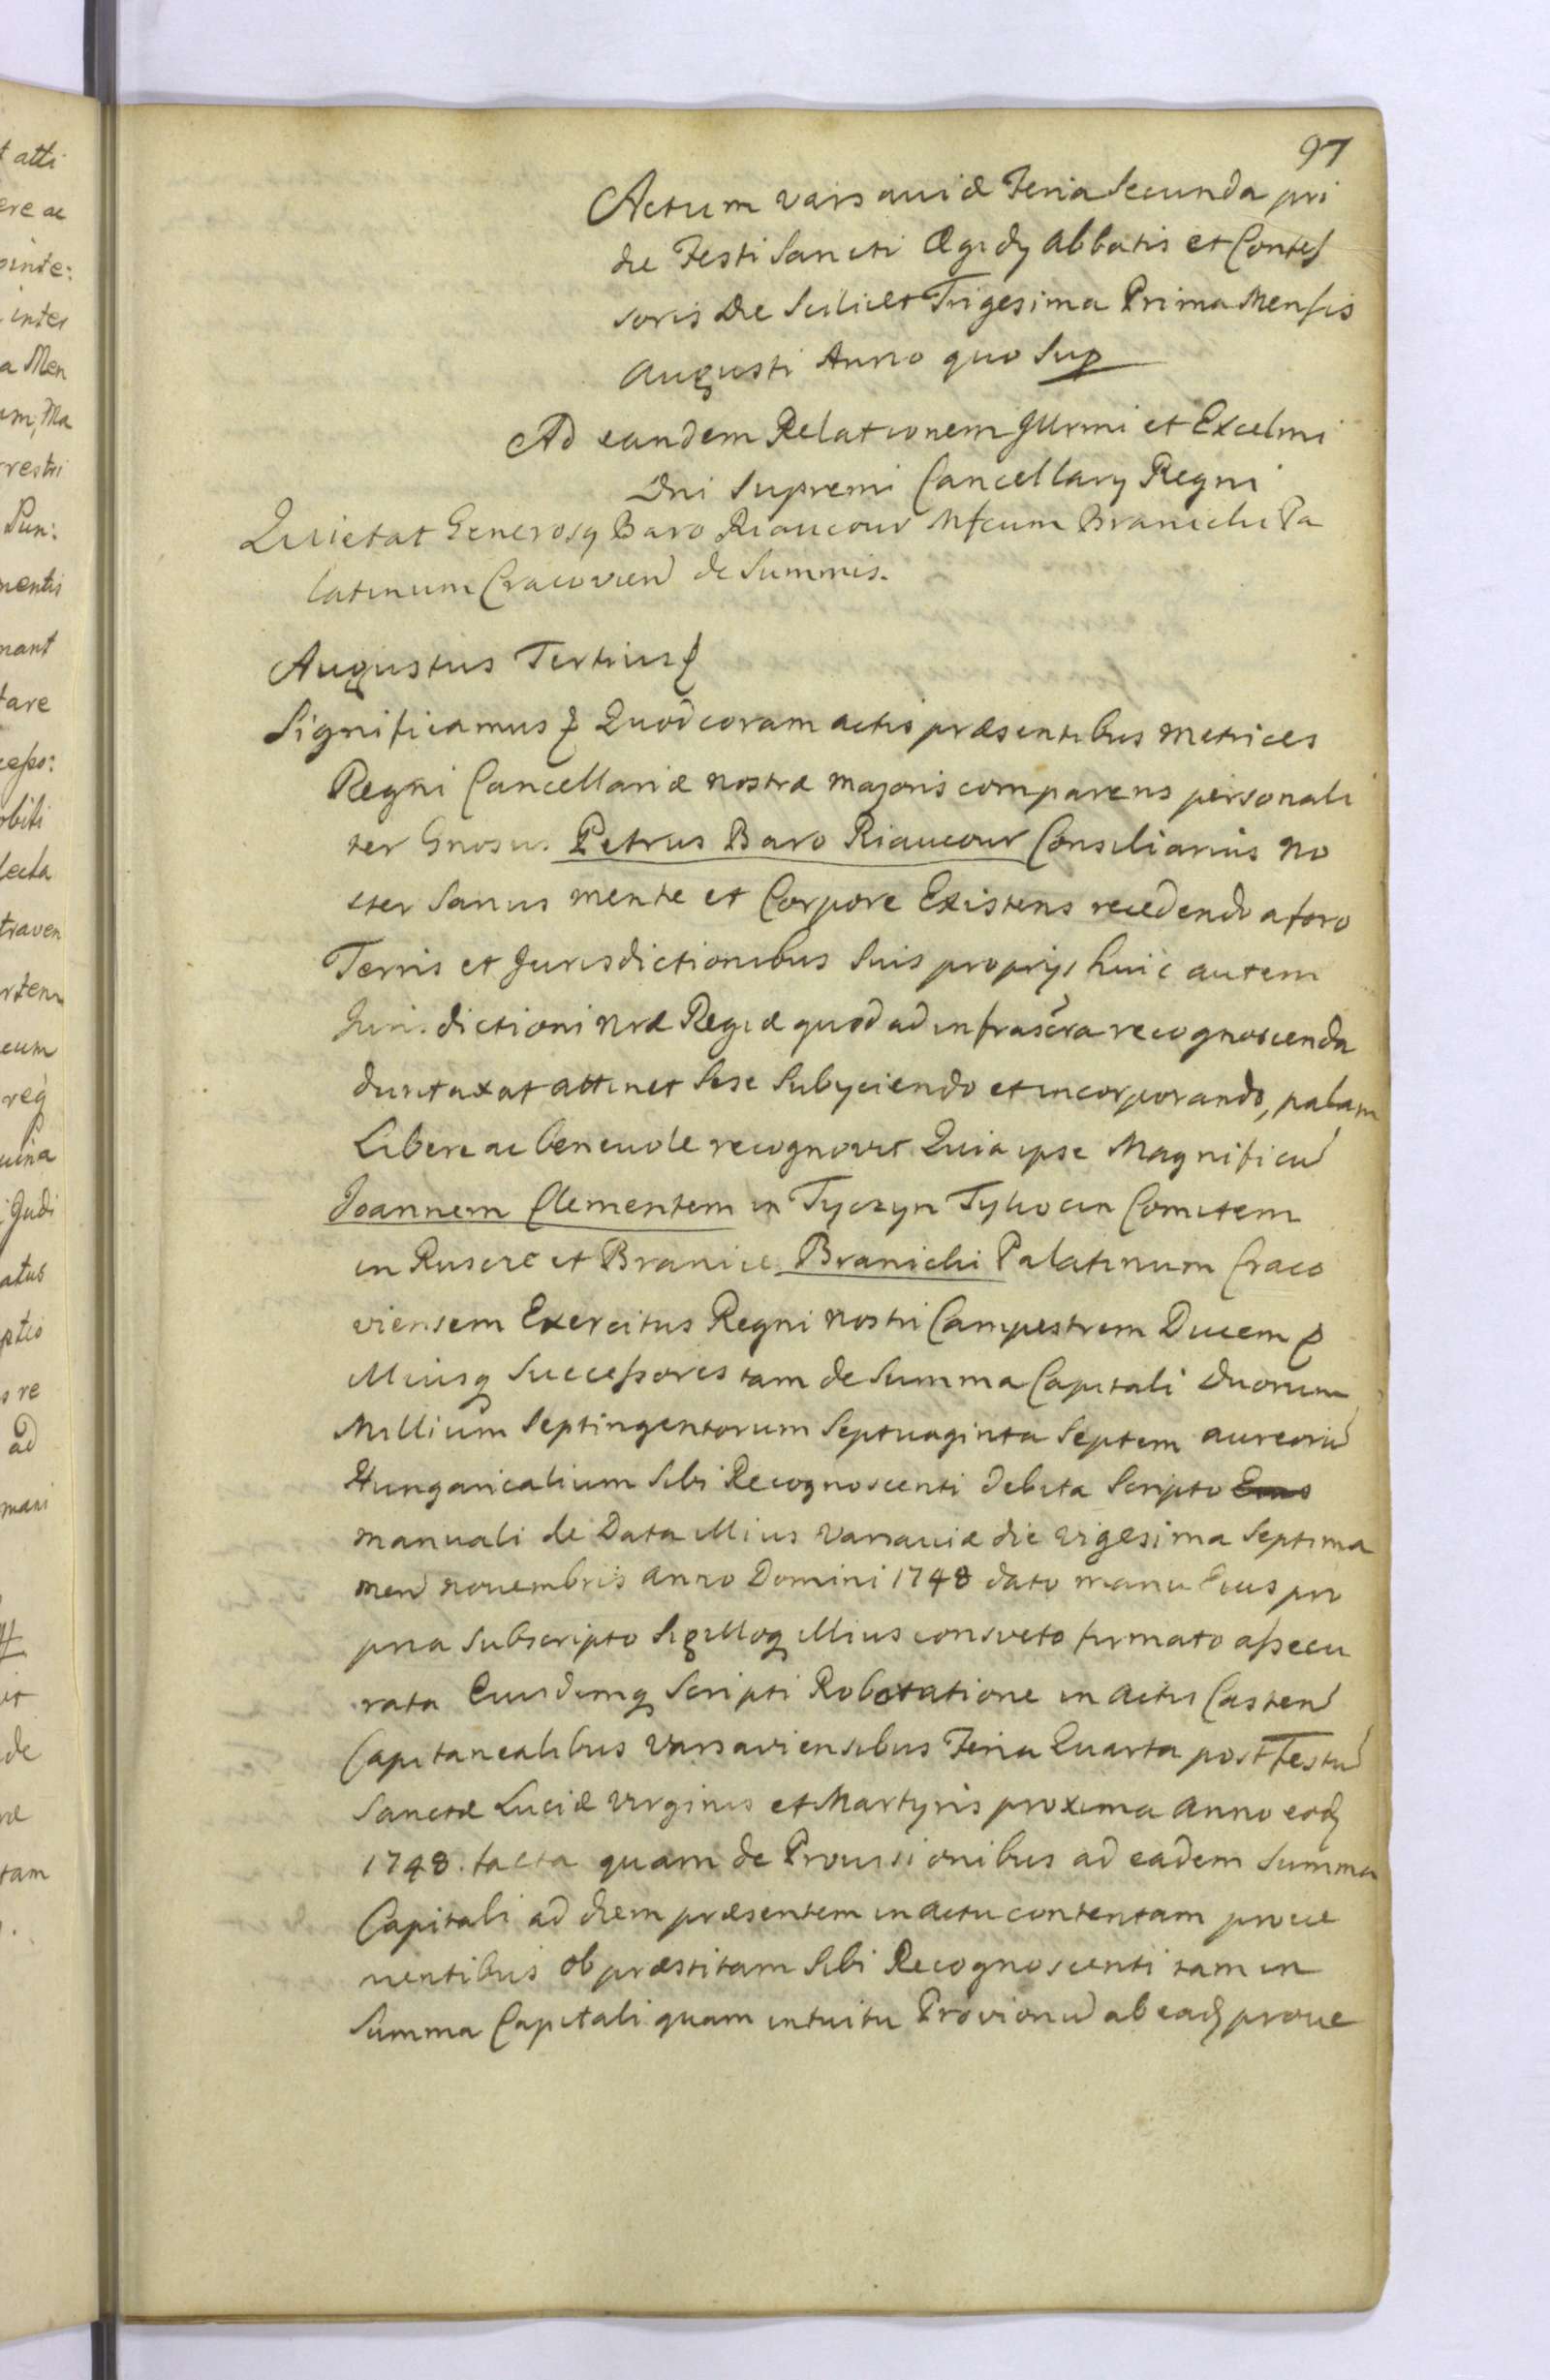 97
Actum varsaviæ Feria Secunda pri
die Festi Sancti Ægidÿ Abbatis et Confes
soris Die Scilicet Trigesima Prima Mensis
Augusti Anno quo Sup
Ad eandem Relationem Illrmi et Excelmi
Dni Supremi Cancellarÿ Regni
Quietat Generosq Baro Riaucour Mfcum Branicki Pa
latinum Cracovien de Summis.
Augustus Tertius
Significamus Quod coram actis præsentibus metrices
Regni Cancellariæ nostræ majoris comparens personali
ter Gnosus Petrus Baro Riaucour Consiliarius no
ster Sanus mente et Corpore Existens recedendo a foro
Terris et Jurisdictionibus Suis proprÿs huic autem
Juris dictioni nræ Regiæ quod ad infrascra recognoscenda
duntaxat attinet Sese Subÿciendo et incorporando, palam
Libere ac benevole recognovit Quia ipse Magnificu
Joannem Clementem in Tyczyn Tykocin Comitem
in Rusce et Branice Branicki Palatinum Craco
viensem Exercitus Regni nostri Campestrem Ducem
Illiusq Successores tam de Summa Capitali Duorum
Millium Septingentorum Septuaginta Septem aureoru
Hungaricalium Sibi Recognoscenti debita Scripto
manuali de Data Illius Varsaviæ die vigesima Septima
men novembris anno Domini 1748 dato manu Eius pro
pria Subscripto Sigilloq Illius consveto firmato assecu
rata Eiusdemq Scripti Roboratione in actis Castren
Capitanealibus Varsaviensibus Feria Quarta post Festu
Sanctæ Luciæ Virginis et Martyris proxima anno eod
1748. facta quam de Provisionibus ad eadem Summa
Capitali ad diem præsentem in actu contentam prove
nentibus ob præstitam Sibi Recognoscenti tam in
Summa Capitali quam intuitu Provionu ab ead prove